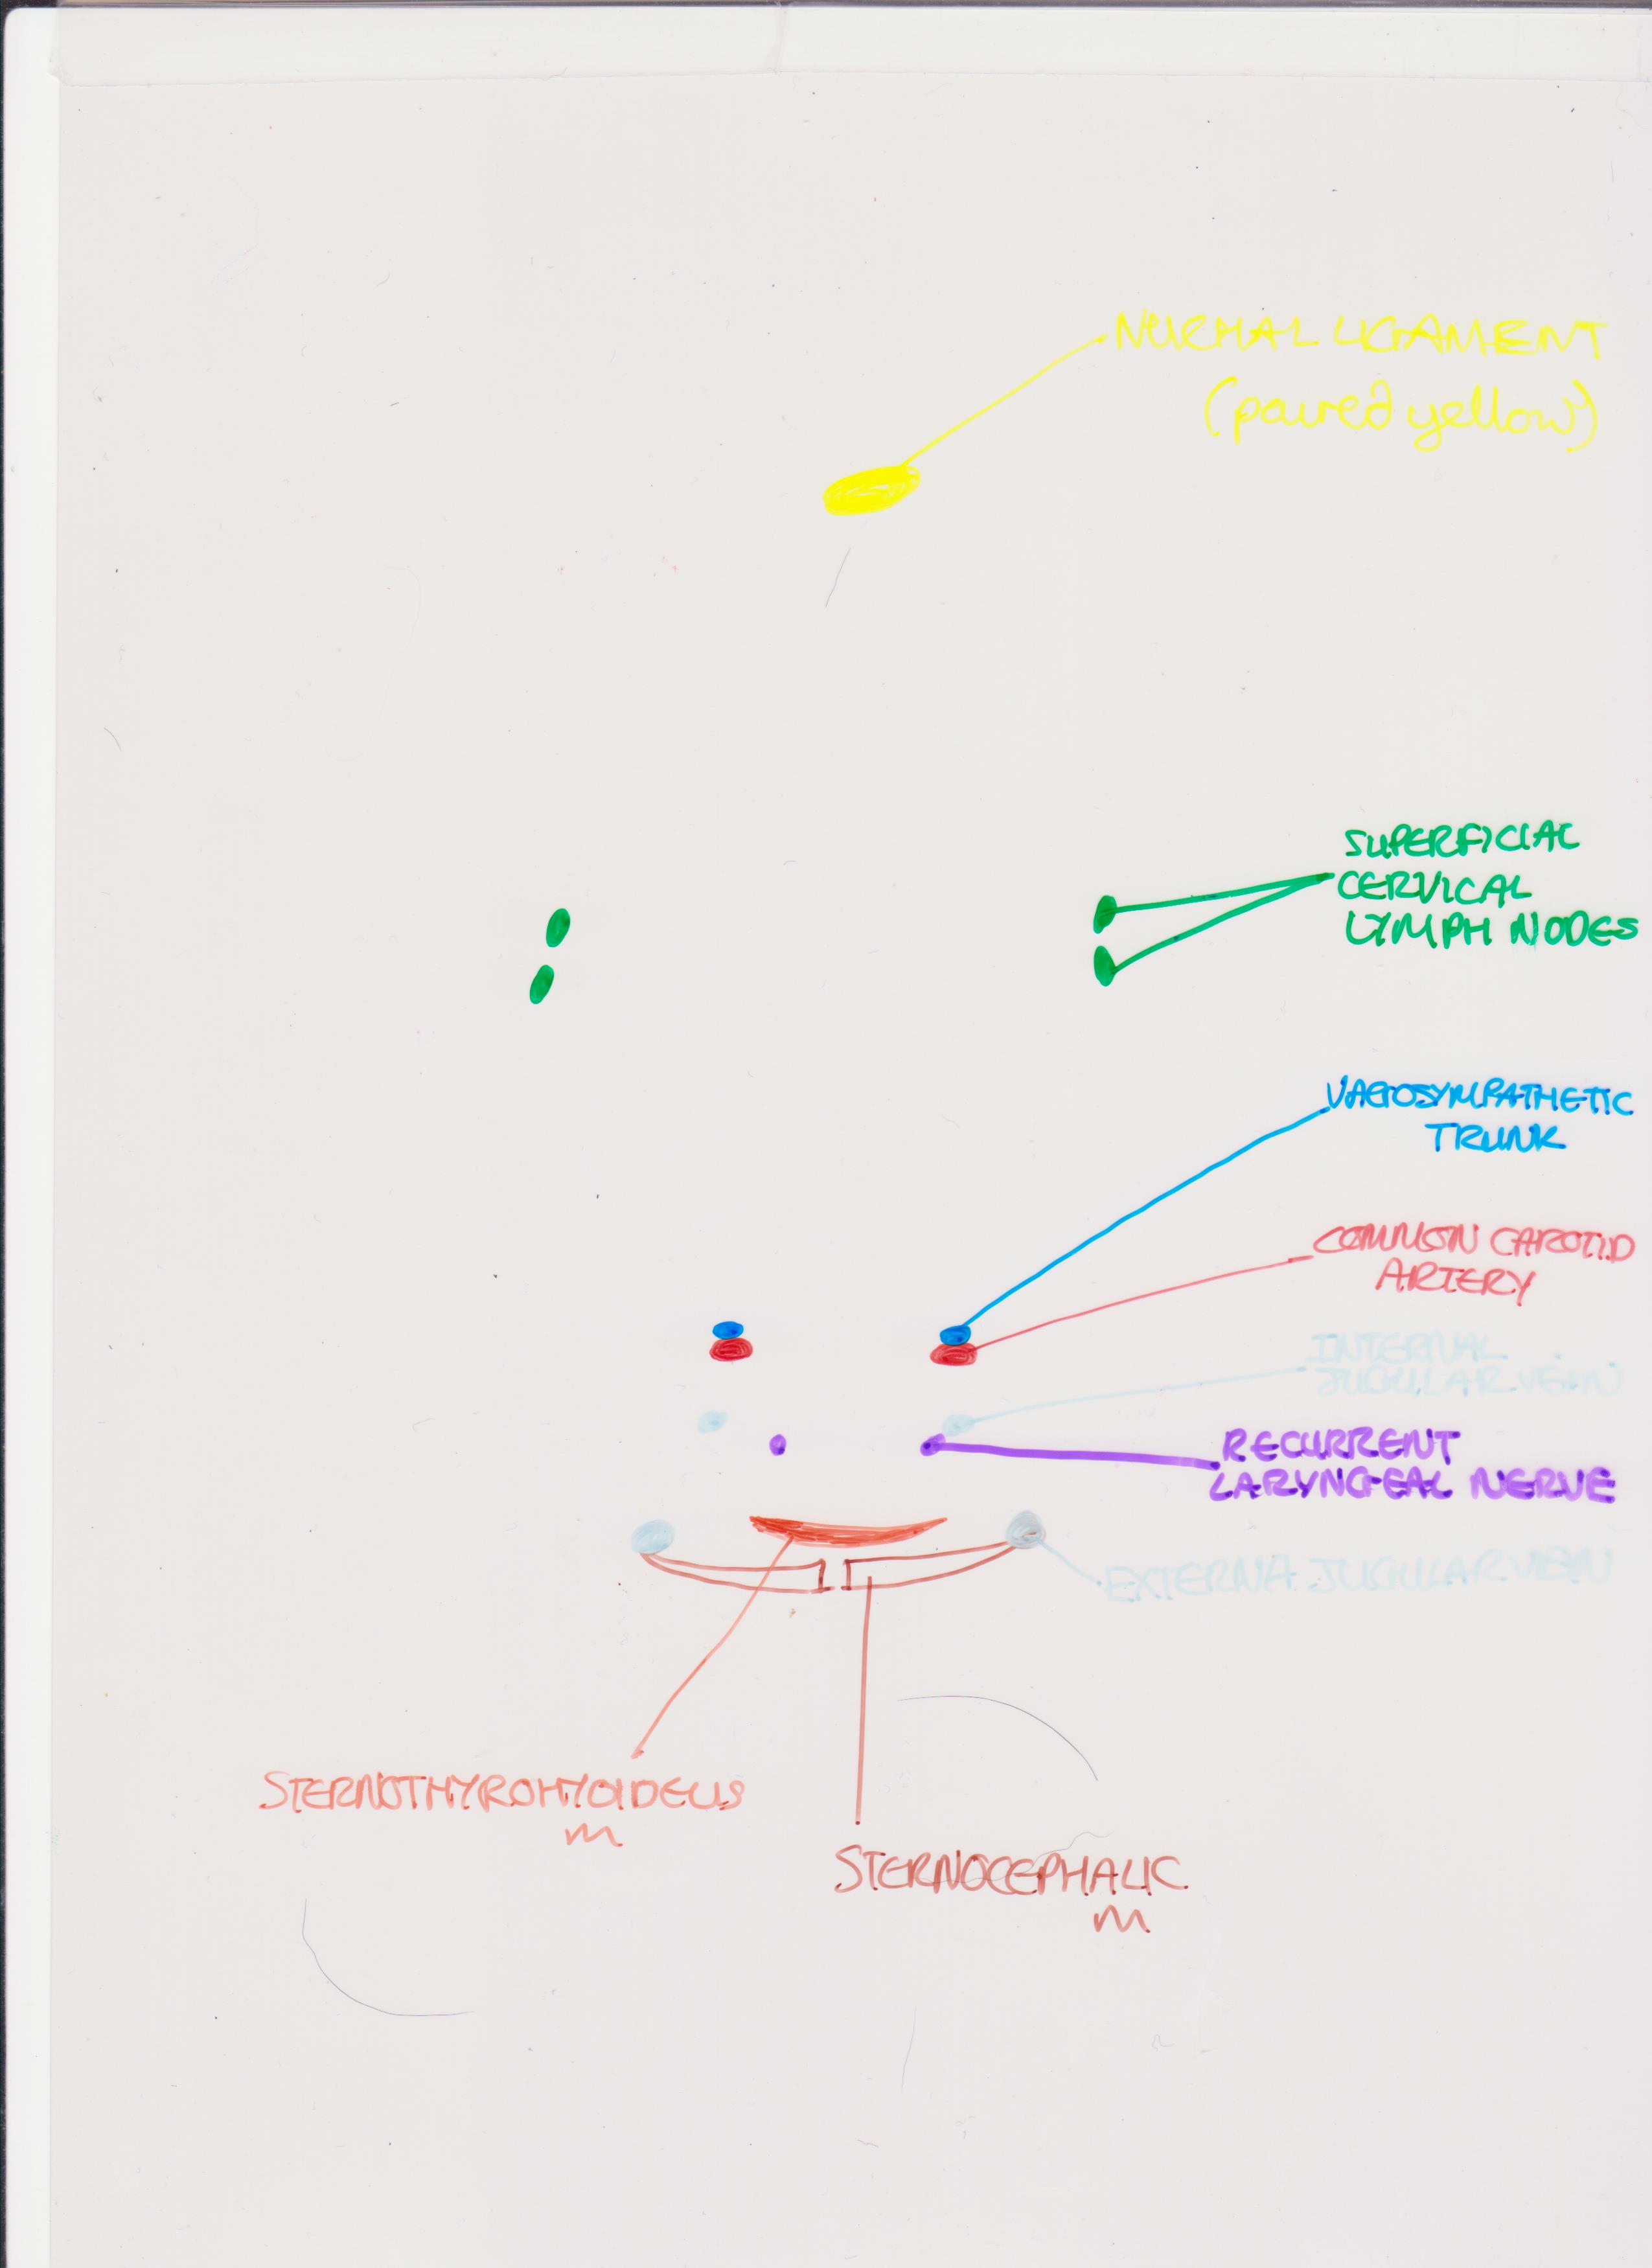 NUCHAL LIGAMENT
(paired yellow)
SUPERFICIAL
CERVICAL
LYMPH NODES
VAGOSYMPATHETIC
TRUNK
COMMON CAROTID
ARTERY
INTERNAL
JUGULAR VEIN
RECURRENT
LARYNGEAL NERVE
EXTERNA JUGULAR VEIN
STERNOTHYROHYOIDEUS
m
STERNOCEPHALIC
m